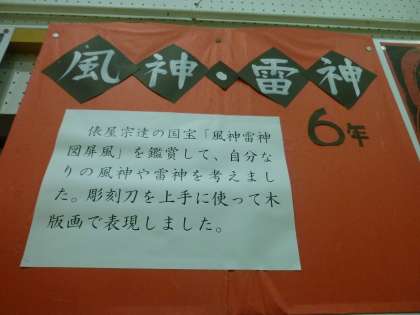 風神・雷神
6年
俵屋宗達の国宝「風神雷神
図屏風」を鑑賞して、自分な
りの風神や雷神を考えまし
た。彫刻刀を上手に使って木
版画で表現しました。